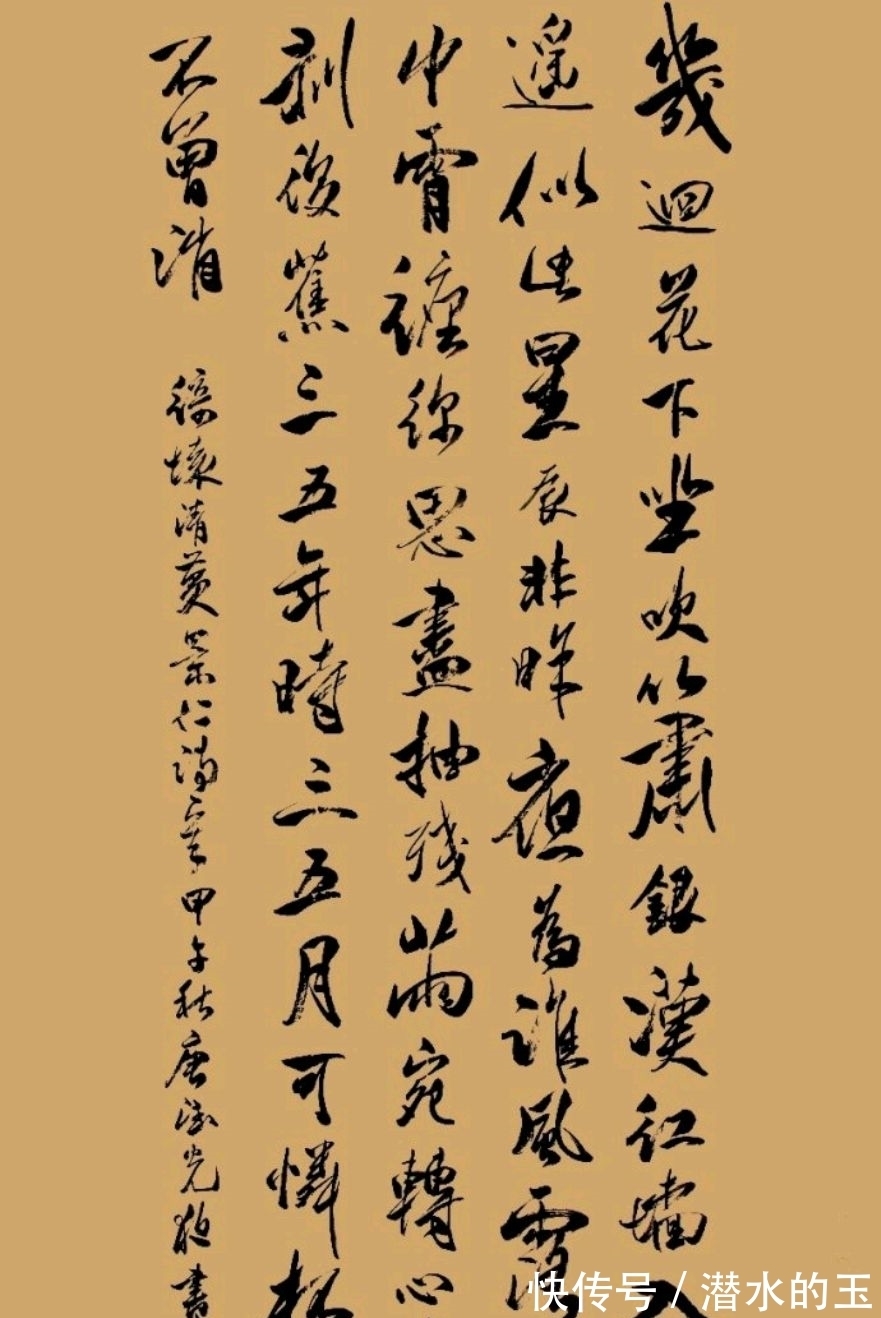 幾迴花下坐吹簫銀漢紅墻入
遙似此星辰非昨夜為誰風露
中宵纏綿思盡抽殘繭宛轉心
剝後蕉三五年時三五月可憐杯
不曾消 綺懷清黃景仁詩章甲午秋唐光書
快传号 / 潜水的玉